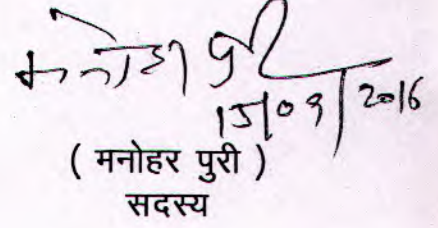 मनोहर पुरी
15/09/2016
( मनोहर पुरी )
सदस्य